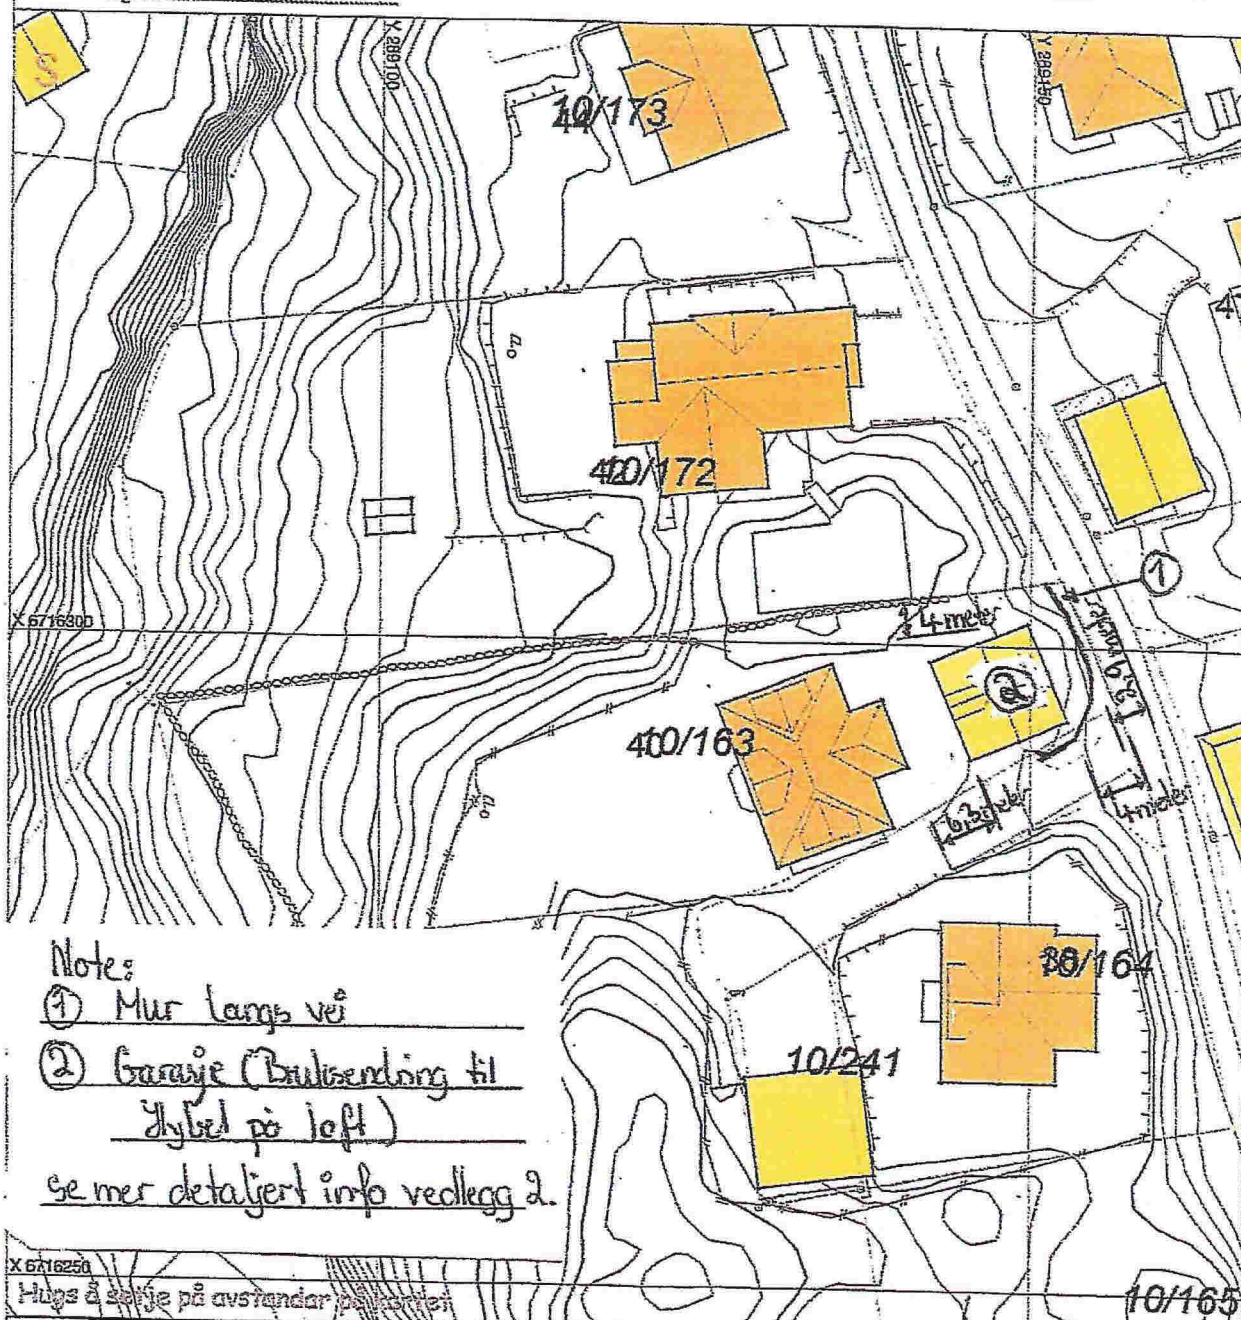 Y 289100
Y 289150
10/173
44
47
10/172
42
1
X 6716300
4 meter
2
10/163
40
6,3 meter
4 meter
10/164
38
10/241
Note:
1 Mur langs vei
2 Garasje (Bruksendring til
Hybel på loft)
se mer detaljert info vedlegg 2.
X 6716250
Hugs å setje på avstandar på kartet
10/165